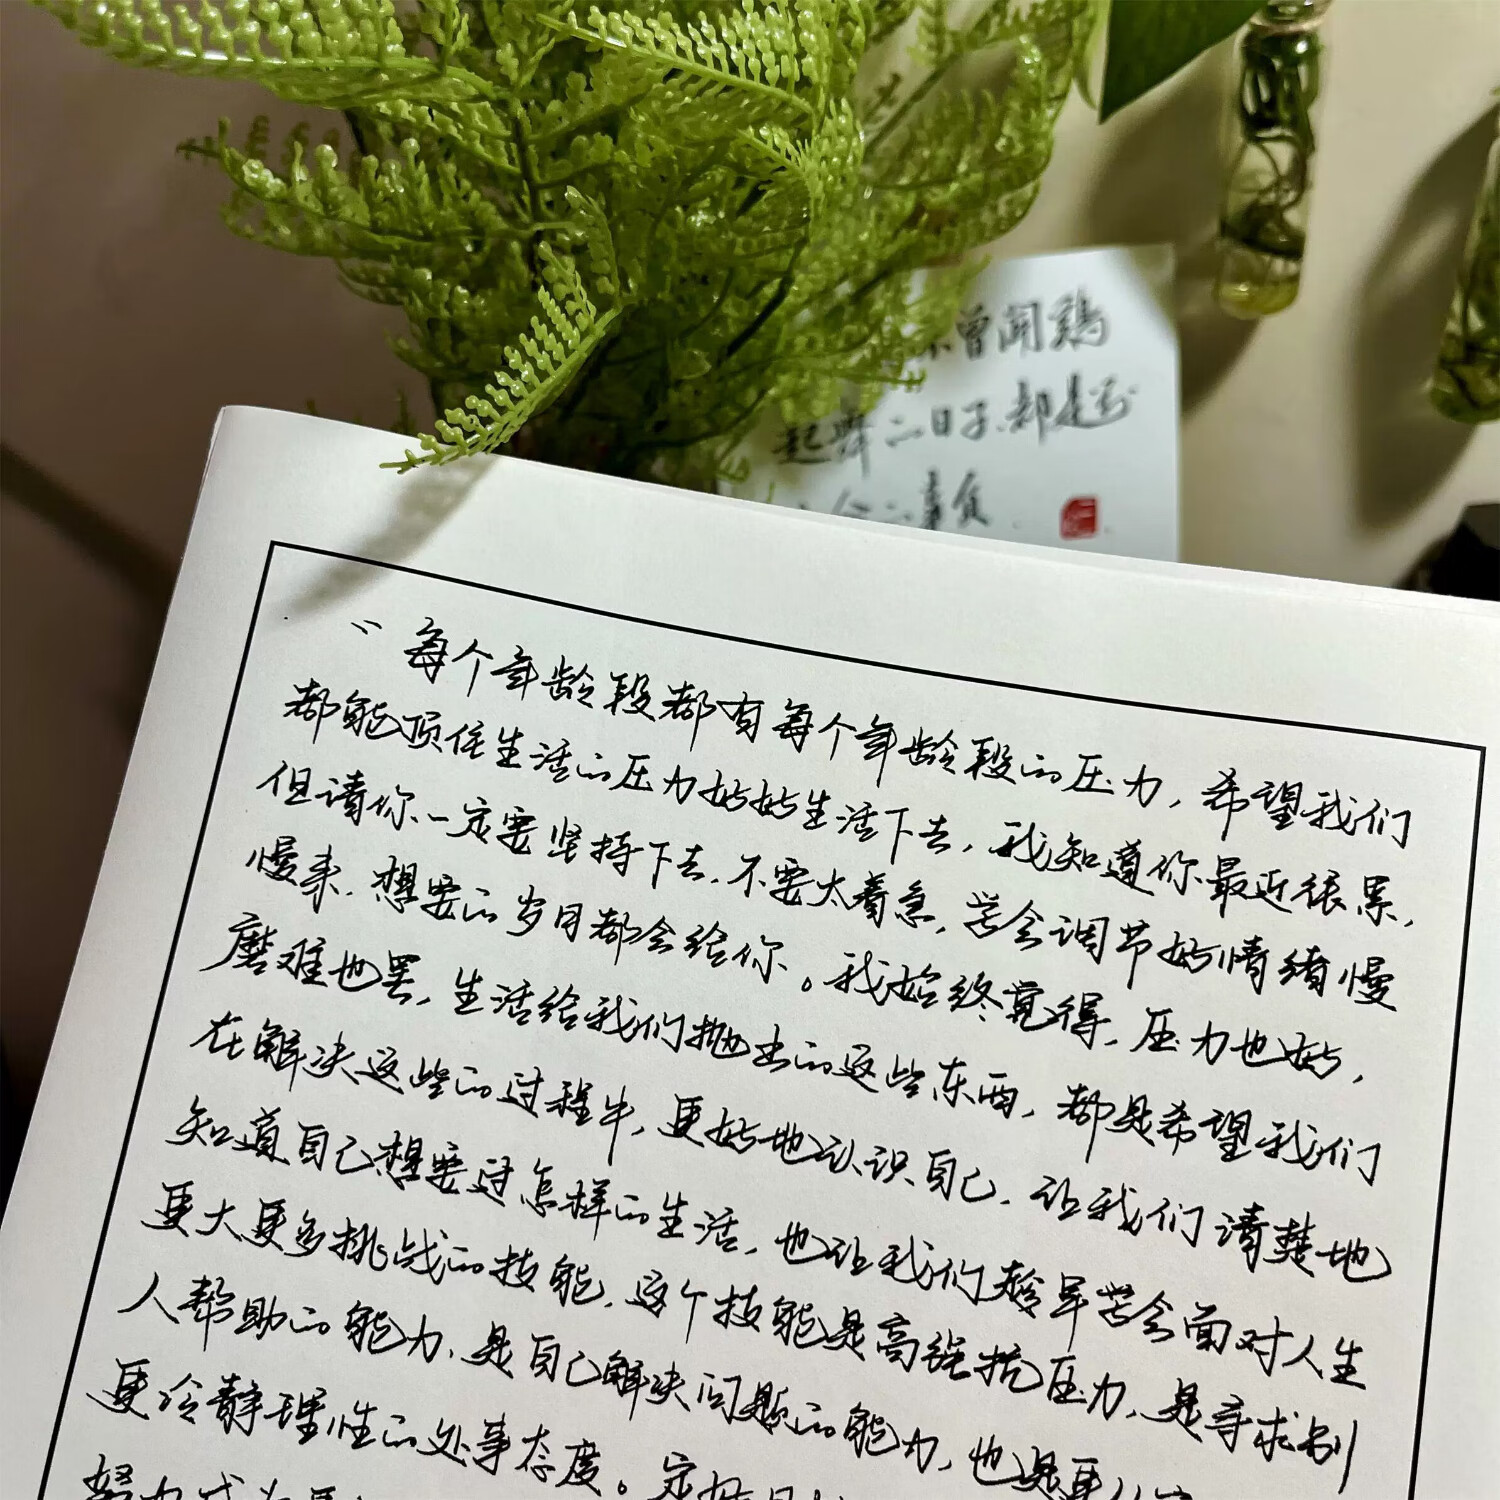 曾闻鸡
起舞的日子都是对
命的辜负
“每个年龄段都有每个年龄段的压力,希望我们
都能顶住生活的压力好好生活下去,我知道你最近很累,
但请你一定要坚持下去.不要太着急,学会调节好情绪慢
慢来.想要的岁月都会给你。我始终觉得,压力也好,
磨难也罢,生活给我们抛出的这些东西,都是希望我们
在解决这些的过程中,更好地认识自己.让我们清楚地
知道自己想要过怎样的生活,也让我们趁早学会面对人生
更大更多挑战的技能.这个技能是高强抗压力,是寻求别
人帮助的能力、是自己解决问题的能力,也是更
更冷静理性的处事态度。定
努力成为更